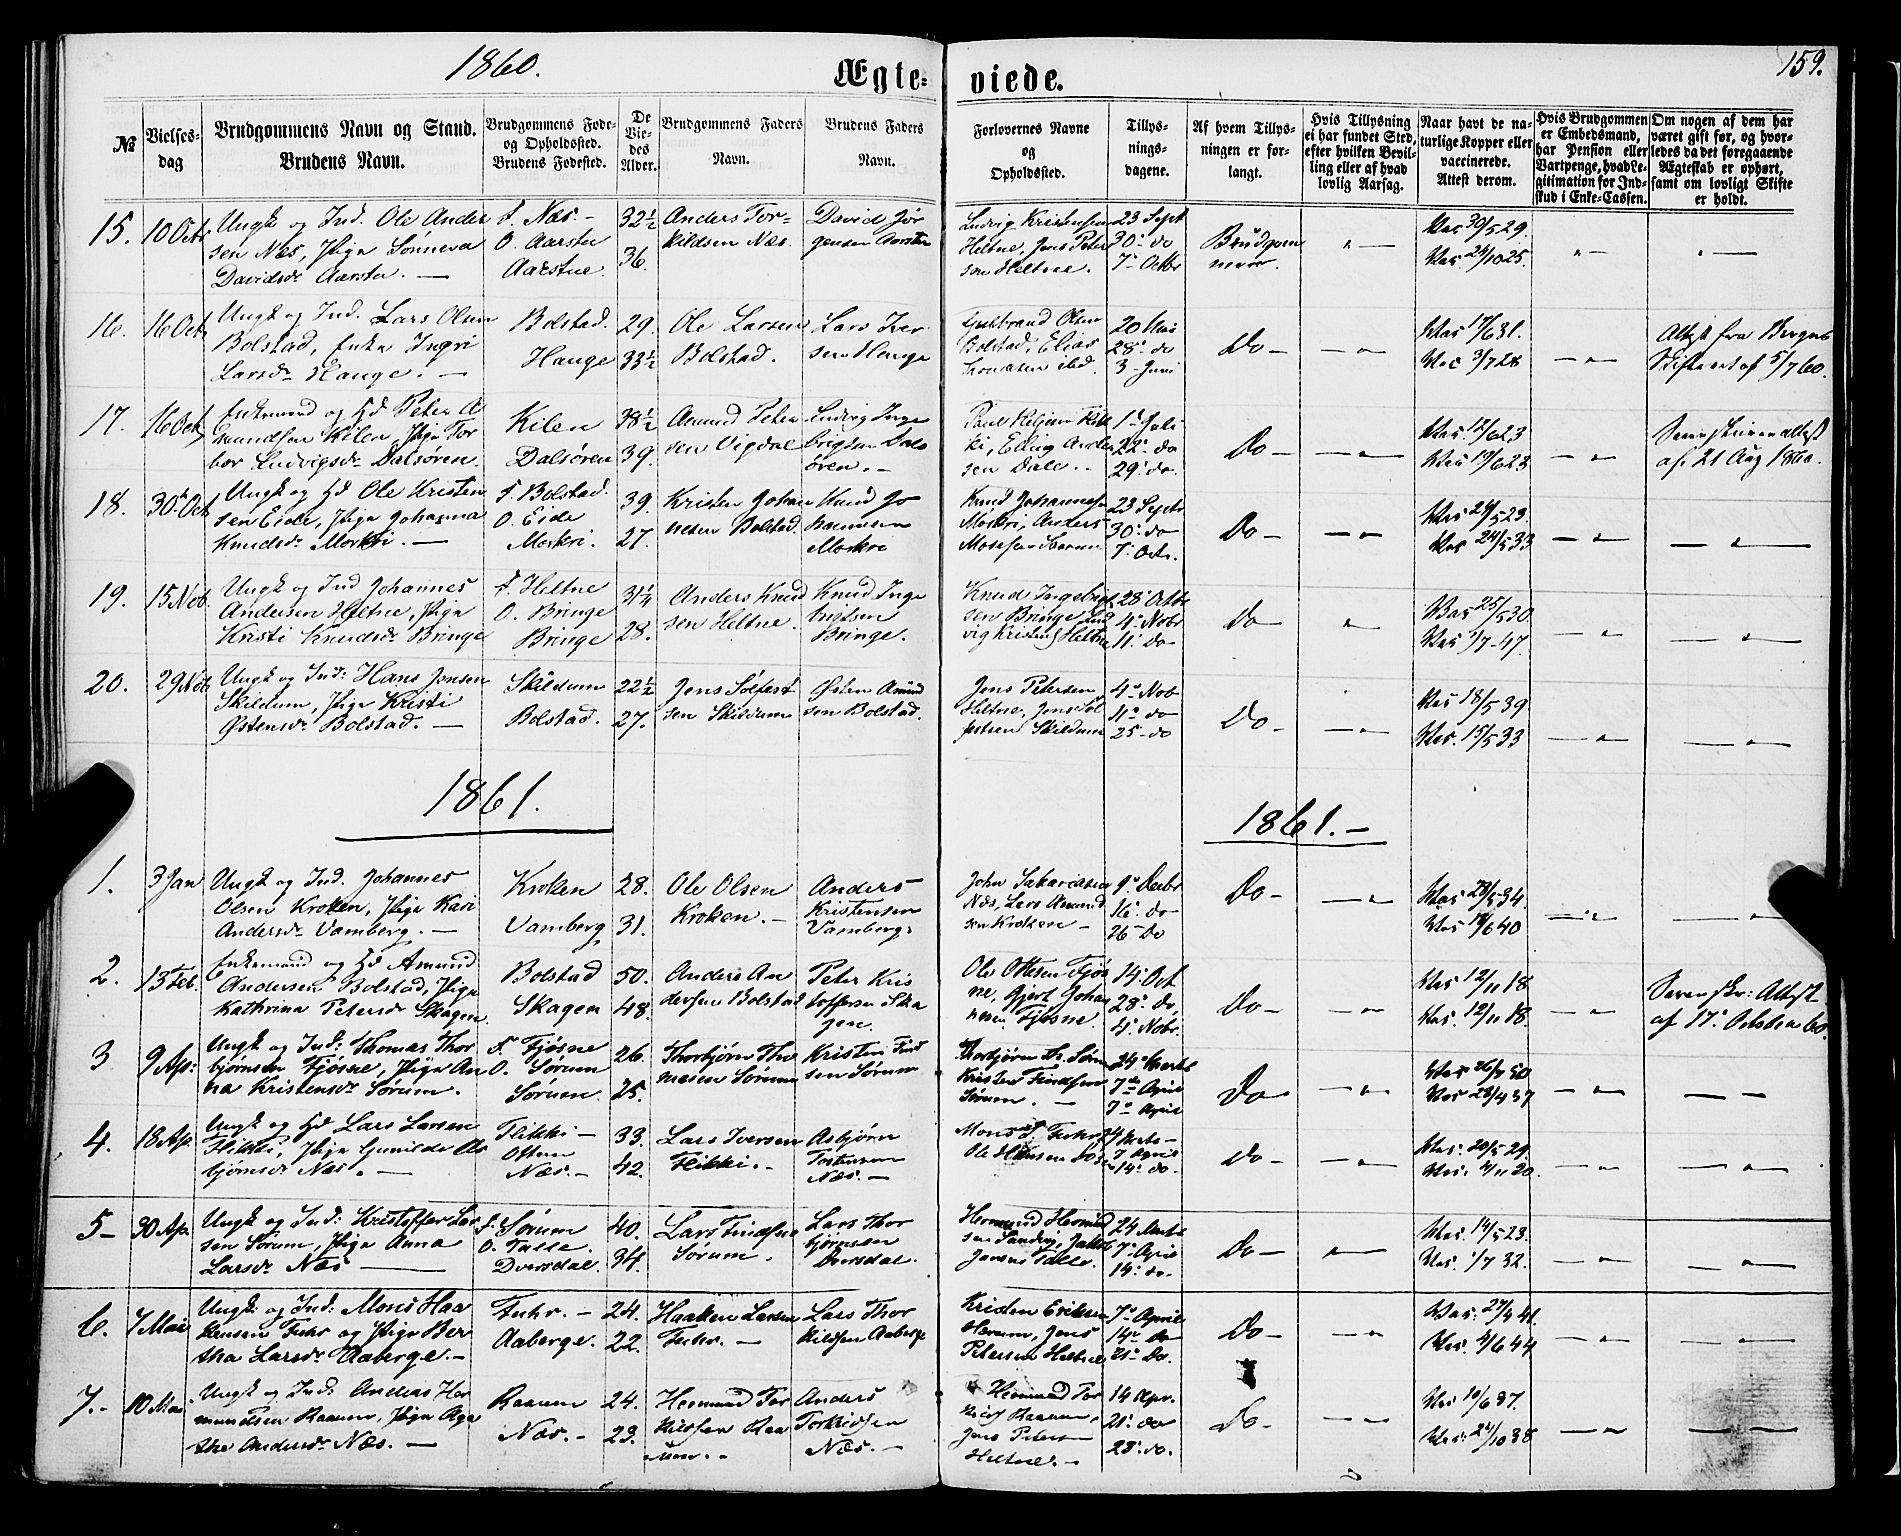 1860.
Ægte-
viede.
159.
№
Vielses-
dag
Brudgommens Navn og Stand.
Brudens Navn.
Brudgommens Føde-
og Opholdssted.
Brudens Fødested.
De
Vie-
des
Alder.
Brudgommens Faders
Navn.
Brudens Faders
Navn.
Forlovernes Navne
og
Opholdssted.
Tillys-
nings-
dagene.
Af hvem Tillys-
ningen er for-
langt.
Hvis Tillysning
ei har fundet Sted,
efter hvilken Bevil-
ling eller af hvad
lovlig Aarsag.
Naar havt de na-
turlige Kopper eller
vaccinerede.
Attest derom.
Hvis Brudgommen
er Embedsmand,
har Pension eller
Vartpenge, hvad Le-
gitimation for Ind-
skud i Enke-Cassen.
Om nogen af dem har
været gift før, og hvor-
ledes da det foregaaende
Ægteskab er ophørt,
samt om lovligt Skifte
er holdt.
15. 10 Octr
Ungk og Ind. Ole Ander
sen Næs, Pige Sønneva
Davidsdr Aarsten. —
F. Næs. —
O. Aarsten
Aarstne.
32½
36.
Anders Tor-
kildsen Næs.
David Jør
gensen Aarsten
Ludvig Kristensen
Heltne, Jens Peter
sen Heltne.
23 Sept
30' do
7' Octbr
Brudgom
men
Vac 30/5 29.
Vac. 24/10 25.
16. 16 Oct.
Ungk og Ind. Lars Olsen
Bolstad, Enke Ingri
Larsdr Hauge. —
Bolstad.
Hauge
29.
33½
Ole Larsen
Bolstad.
Lars Iver
sen Hauge
Olsen
Bolstad, Elias
Thomasen ibd.
20 Mai
28' do
3 - Juni
Do —
Vac 17/6 31.
Vac 3/7 28
Attest fra Bergens
Skifteret af 5/7 60.
17. 16 Oct,
Enkemand og Hd Peter A
mundsen Kilen, Pige Tor
bor Ludvigsdr Dalsøren.
Kilen
Dalsøren
38½
39.
Amund Peter
sen Vigdal
Ludvig Inge
brigtsen Dals
øren. —
Paul Helgesen
Anders
sen Dale..
1' Juli
22' do
29' do.
Do —
Vac. 12/6 23
Vac 19/6 23
Sorenskriverattest
af 21 Aug 1860.
18. 30' Oct
Ungk og Hd Ole Kristen
sen Eide, Pige Johanna
Knudsdr Morkri. —
F. Bolstad.
O. Eide
Morkri.
39.
27.
Kristen Johan
nesen Bolstad.
Knud Jo
hannesen
Morkri
Knud Johannesen
Morkri, Anders
Mosesen
23 Septr
30' do
7' Octr.
Do —
Vac 24/5 23.
Vac 24/5 33
19. 15 Nob.
Ungk og Ind Johannes
Andersen Heltne, Pige
Kristi Knudsdr Bringe
F. Heltne
O. Bringe
Bringe
31¼
28.
Anders Knud
sen Heltne.
Knud Inge
brigtsen
Bringe.
Knud Ingebrigt
sen Bringe Lud
vig Kristens. Heltne
28' Octbr
4' Nobr
11' do
Do —
Vac 25/5 30.
Vac 1/7 - 47.
20. 29 Nob
Ungk og Ind: Hans Jensen
Skildum, Pige Kristi
Østensdr Bolstad. —
Skildum
Bolstad.
22½
27.
Jens Solfest
sen Skildum
Østen Amund
sen Bolstad.
Jens Petersen
Heltne, Jens Sol
festsen Skildum
4' Nob
11' do
25 - do
Do —
Vac 18/5 39
Vac. 15/5 33
1861.
1861. —
1. 3 Jan
Ungk og Ind. Johannes
Olsen Kroken, Pige Kari
Andersdr Vamberg. —
Kroken
Vamberg
28.
31.
Ole Olsen
Kroken. —
Anders
Kristensen
Vamberg.
John Sakariasen
Næs, Lars Amund
sen Kroken —
9' Decbr
16' do
26 - Do
Do —
Vac 28/5 34.
Vac 14/6 40
2. 13 Feb.
Enkemand og Hd Amund
Andersen Bolstad, Pige
Kathrina Petersdr Skagen.
Bolstad
Skagen
50.
48.
Anders An
dersen Bolstad
Peter Kris
toffersen Ska
gen.
Ole Ottesen Fjøs
ne, Gjert Johan
nesen Fjøsne.
14' Oct
28' do,
4' Nobr.
Do —
Vac. 12/11 18
Vac. 12/11 18.
Sorenskr: Attest
af 17' Octob 1860.
3 9 Ap:
Ungk og Ind: Thomas Thor
bjørnsen Fjøsne, Pige An
na Kristensdr Sørum.
F. Fjøsne
O. Sørum
Sørum.
26.
25.
Thorbjørn Tho
mesen Sørum
Kristen Find
sen Sørum
Thorbjørn Th. Sørum
Kristen Findsen
Sørum. —
24' Marts
7de April
7' April
Do —
Vac 26/8 50
Vac 28/4 37
4. 18 Ap.
Ungk og Hd Lars Larsen
Flikki, Pige Gunilde As
bjørnsdr Næs. —
Flikki —
Ottum
Næs. —
33.
42.
Lars Iversen
Flikki. —
Asbjørn
Torstensen
Næs. —
Mons T. Fuhr,
Ole Hansen
24 Marts —
7 April
14' do.
Do —
Vac. 20/5 29.
Vac: 4/11 20.
5 — 30 Ap.
Ungk og Ind: Kristoffer Lar
sen Sørum, Pige Anna
Larsdr Næs —
F. Sørum
O. Talle.
Dversdal.
40.
34.
Lars Findsen
Sørum.
Lars Thor
bjørnsen
Dversdal.
Hermund Hermund
sen Sandvig, Jakob
Jensen Talle.
24 Marts
7' April
14' do.
Do —
Vac. 14/5 23.
Vac. 1/7 32.
6. 7 Mai
Ungk: og Ind: Mons Haa
kensen Fuhr og Pige Ber
tha Larsdr Aaberge. —
Fuhr. —
Aaberge.
24.
22.
Haaken Larsen
Fuhr. —
Lars Thor
kildsen Aaberge
Kristen Eriksen
Hærum, Jens
Petersen Heltne
7' April
14' Do
21' Do.
Do —
Vac. 27/9 41.
Vac. 4/6 44
7. — 10 Mai
Ungk og Ind: Anders Her
mundsen Raaum, Pige Aga
the Andersdr Næs. —
Raaum
Næs. —
24.
23.
Hermund Tor
kildsen Raa
um. —
Anders
Torkildsen
Næs. —
Hermund Tor
kilds Raaum,
Jens Petersen
Heltne. —
14 Apr.
21' do
28' do.
Do —
Vac 10/6 37.
Vac: 22/10 38